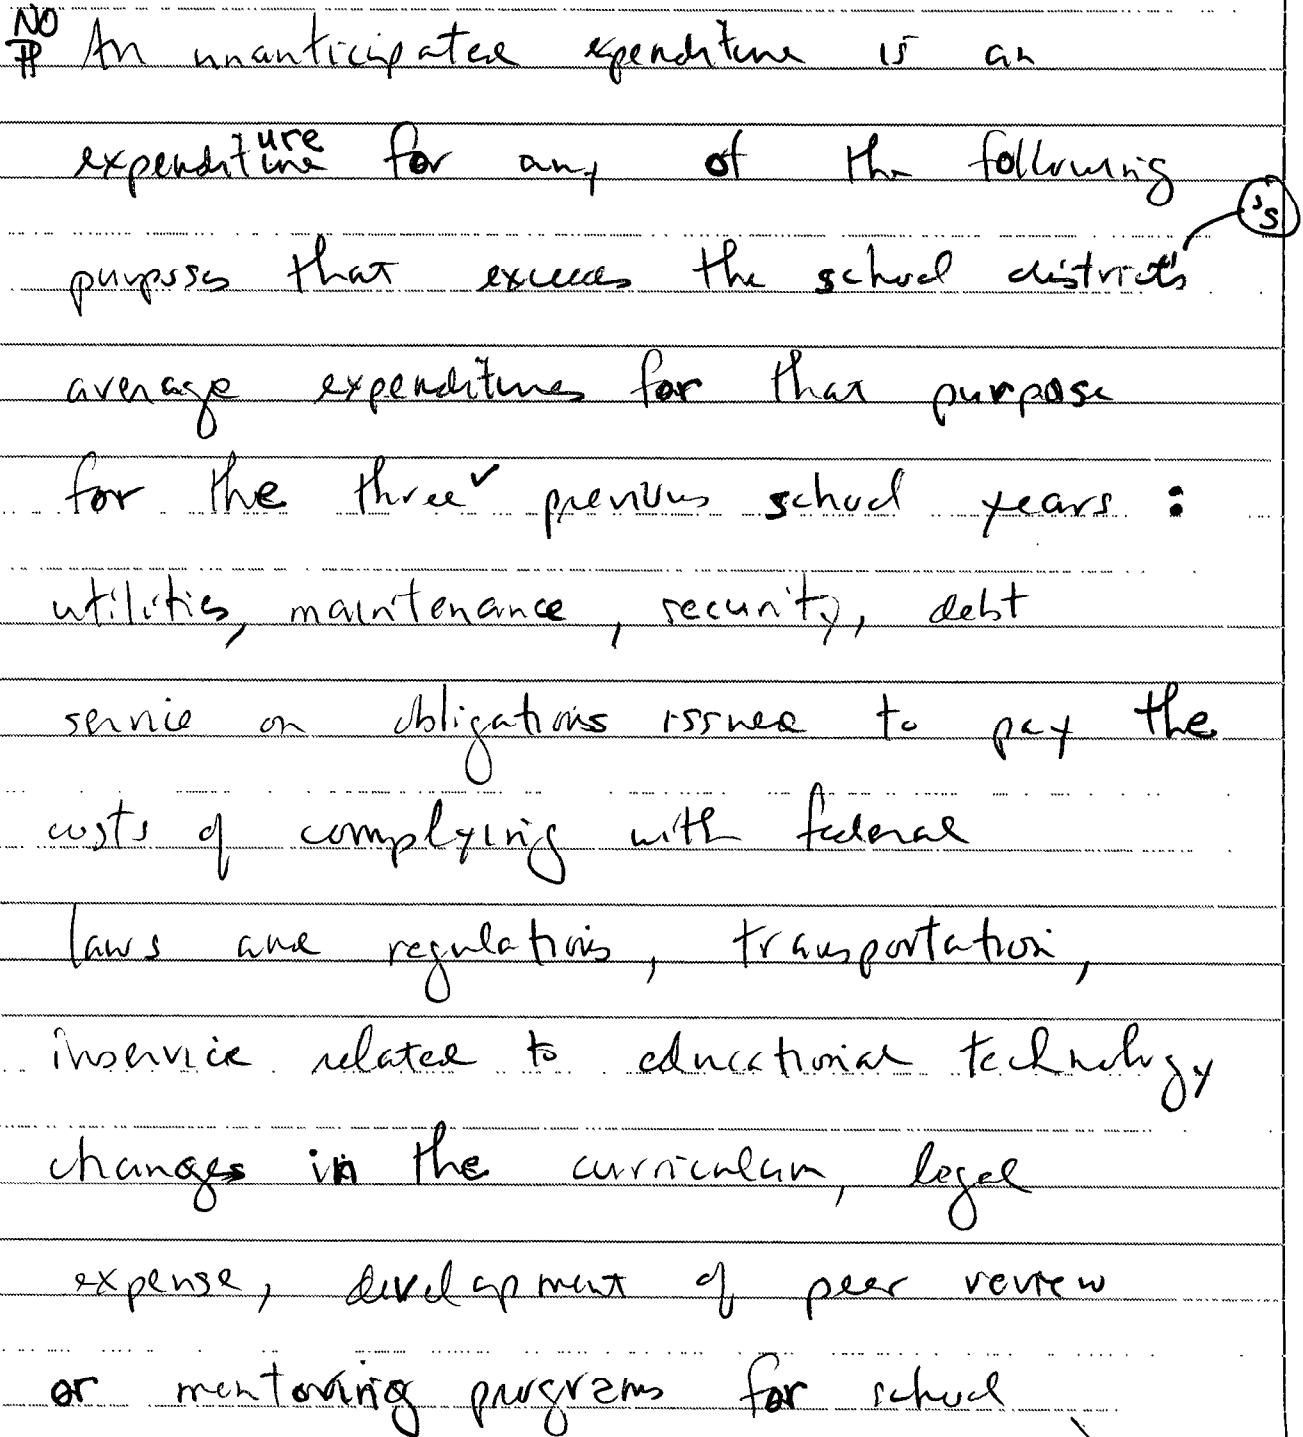 NO ¶ An unanticipated expenditure is an
expenditure for any of the following
purposes that exceeds the school district's
average expenditures for that purpose
for the three previous school years:
utilities, maintenance, security, debt
service on obligations issued to pay the
costs of complying with federal
laws and regulations, transportation,
inservice related to educational technology
changes in the curriculum, legal
expense, development of peer review
or mentoring programs for school